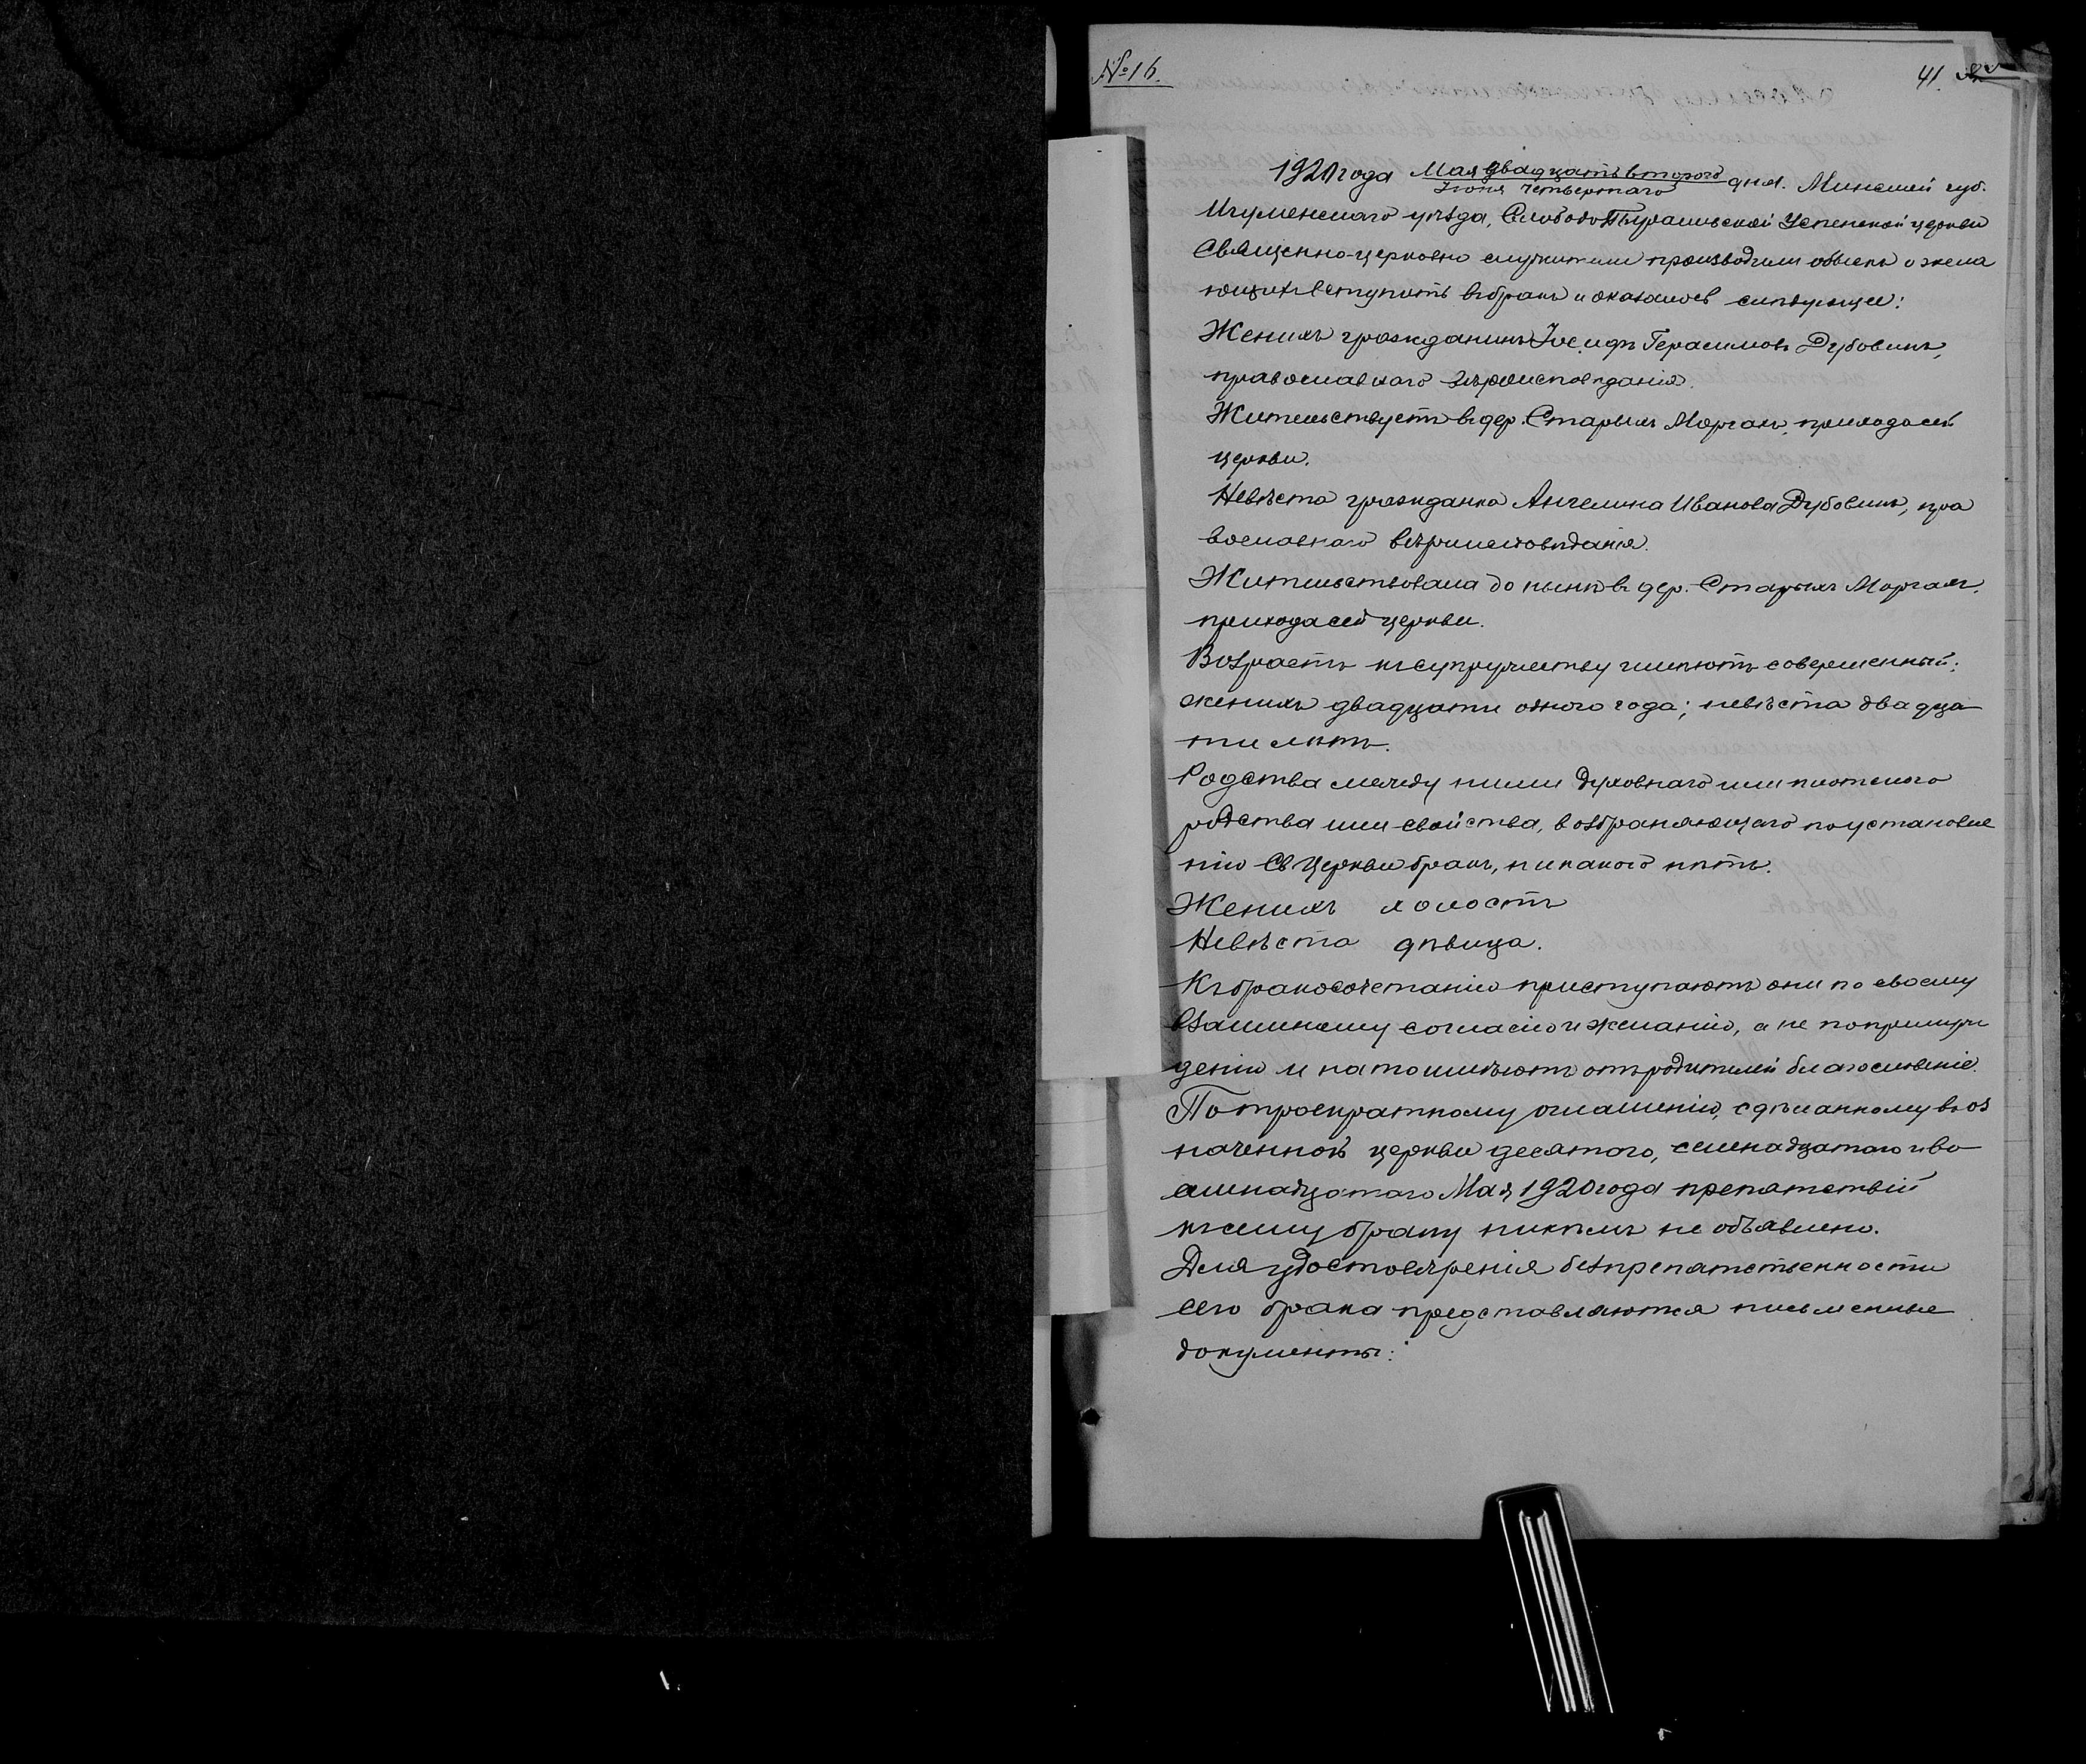 №16.
41.
1920 года Мая двадцать второго дня. Минской губ.
Іюня четвертаго
Игуменскаго уѣзда, Слободо Пырашевской Успенской церкви
Священно-церковно служители производили обыскъ о жела
ющихъ вступить въ бракъ и оказалось слѣдующее:
Женихъ гражданинъ Іосифъ Герасимовъ Дубовикъ,
православнаго вѣроисповѣданія.
Жительствуетъ въ дер. Старыхъ Моргахъ, прихода сей
церкви.
Невѣста гражданка Ангелина Иванова Дубовикъ, пра
вославнаго вѣроисповѣданія.
Жительствовала до нынѣ въ дер. Старыхъ Моргахъ,
прихода сей церкви.
Возрастъ къ супружеству имѣютъ совершенный:
женихъ двадцати одного года; невѣста двадца
ти лѣтъ.
Родства между ними духовнаго или плотскаго
родства или свойства, возбраняющаго по установле
нію Св Церкви бракъ, никакого нѣтъ.
Женихъ холостъ
Невѣста дѣвица.
Къ бракосочетанію приступаютъ они по своему
взаимному согласію и желанію, а не по принуж
денію и на то имѣютъ отъ родителей благословеніе.
По троекратному оглашенію, сдѣланному въ оз
наченной церкви десятого, семнадцатаго и во
семнадцатаго Мая 1920 года препятствій
къ сему браку никѣмъ не объявлено.
Для удостовѣренія безпрепятственности
сего брака представляются письменные
документы: